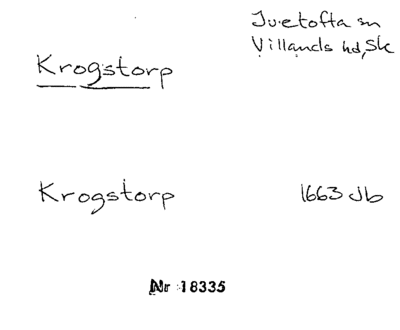 Ivetofta sn
Villands hd, Sk
Krogstorp
Krogstorp 1663 Jb
Nr 18335